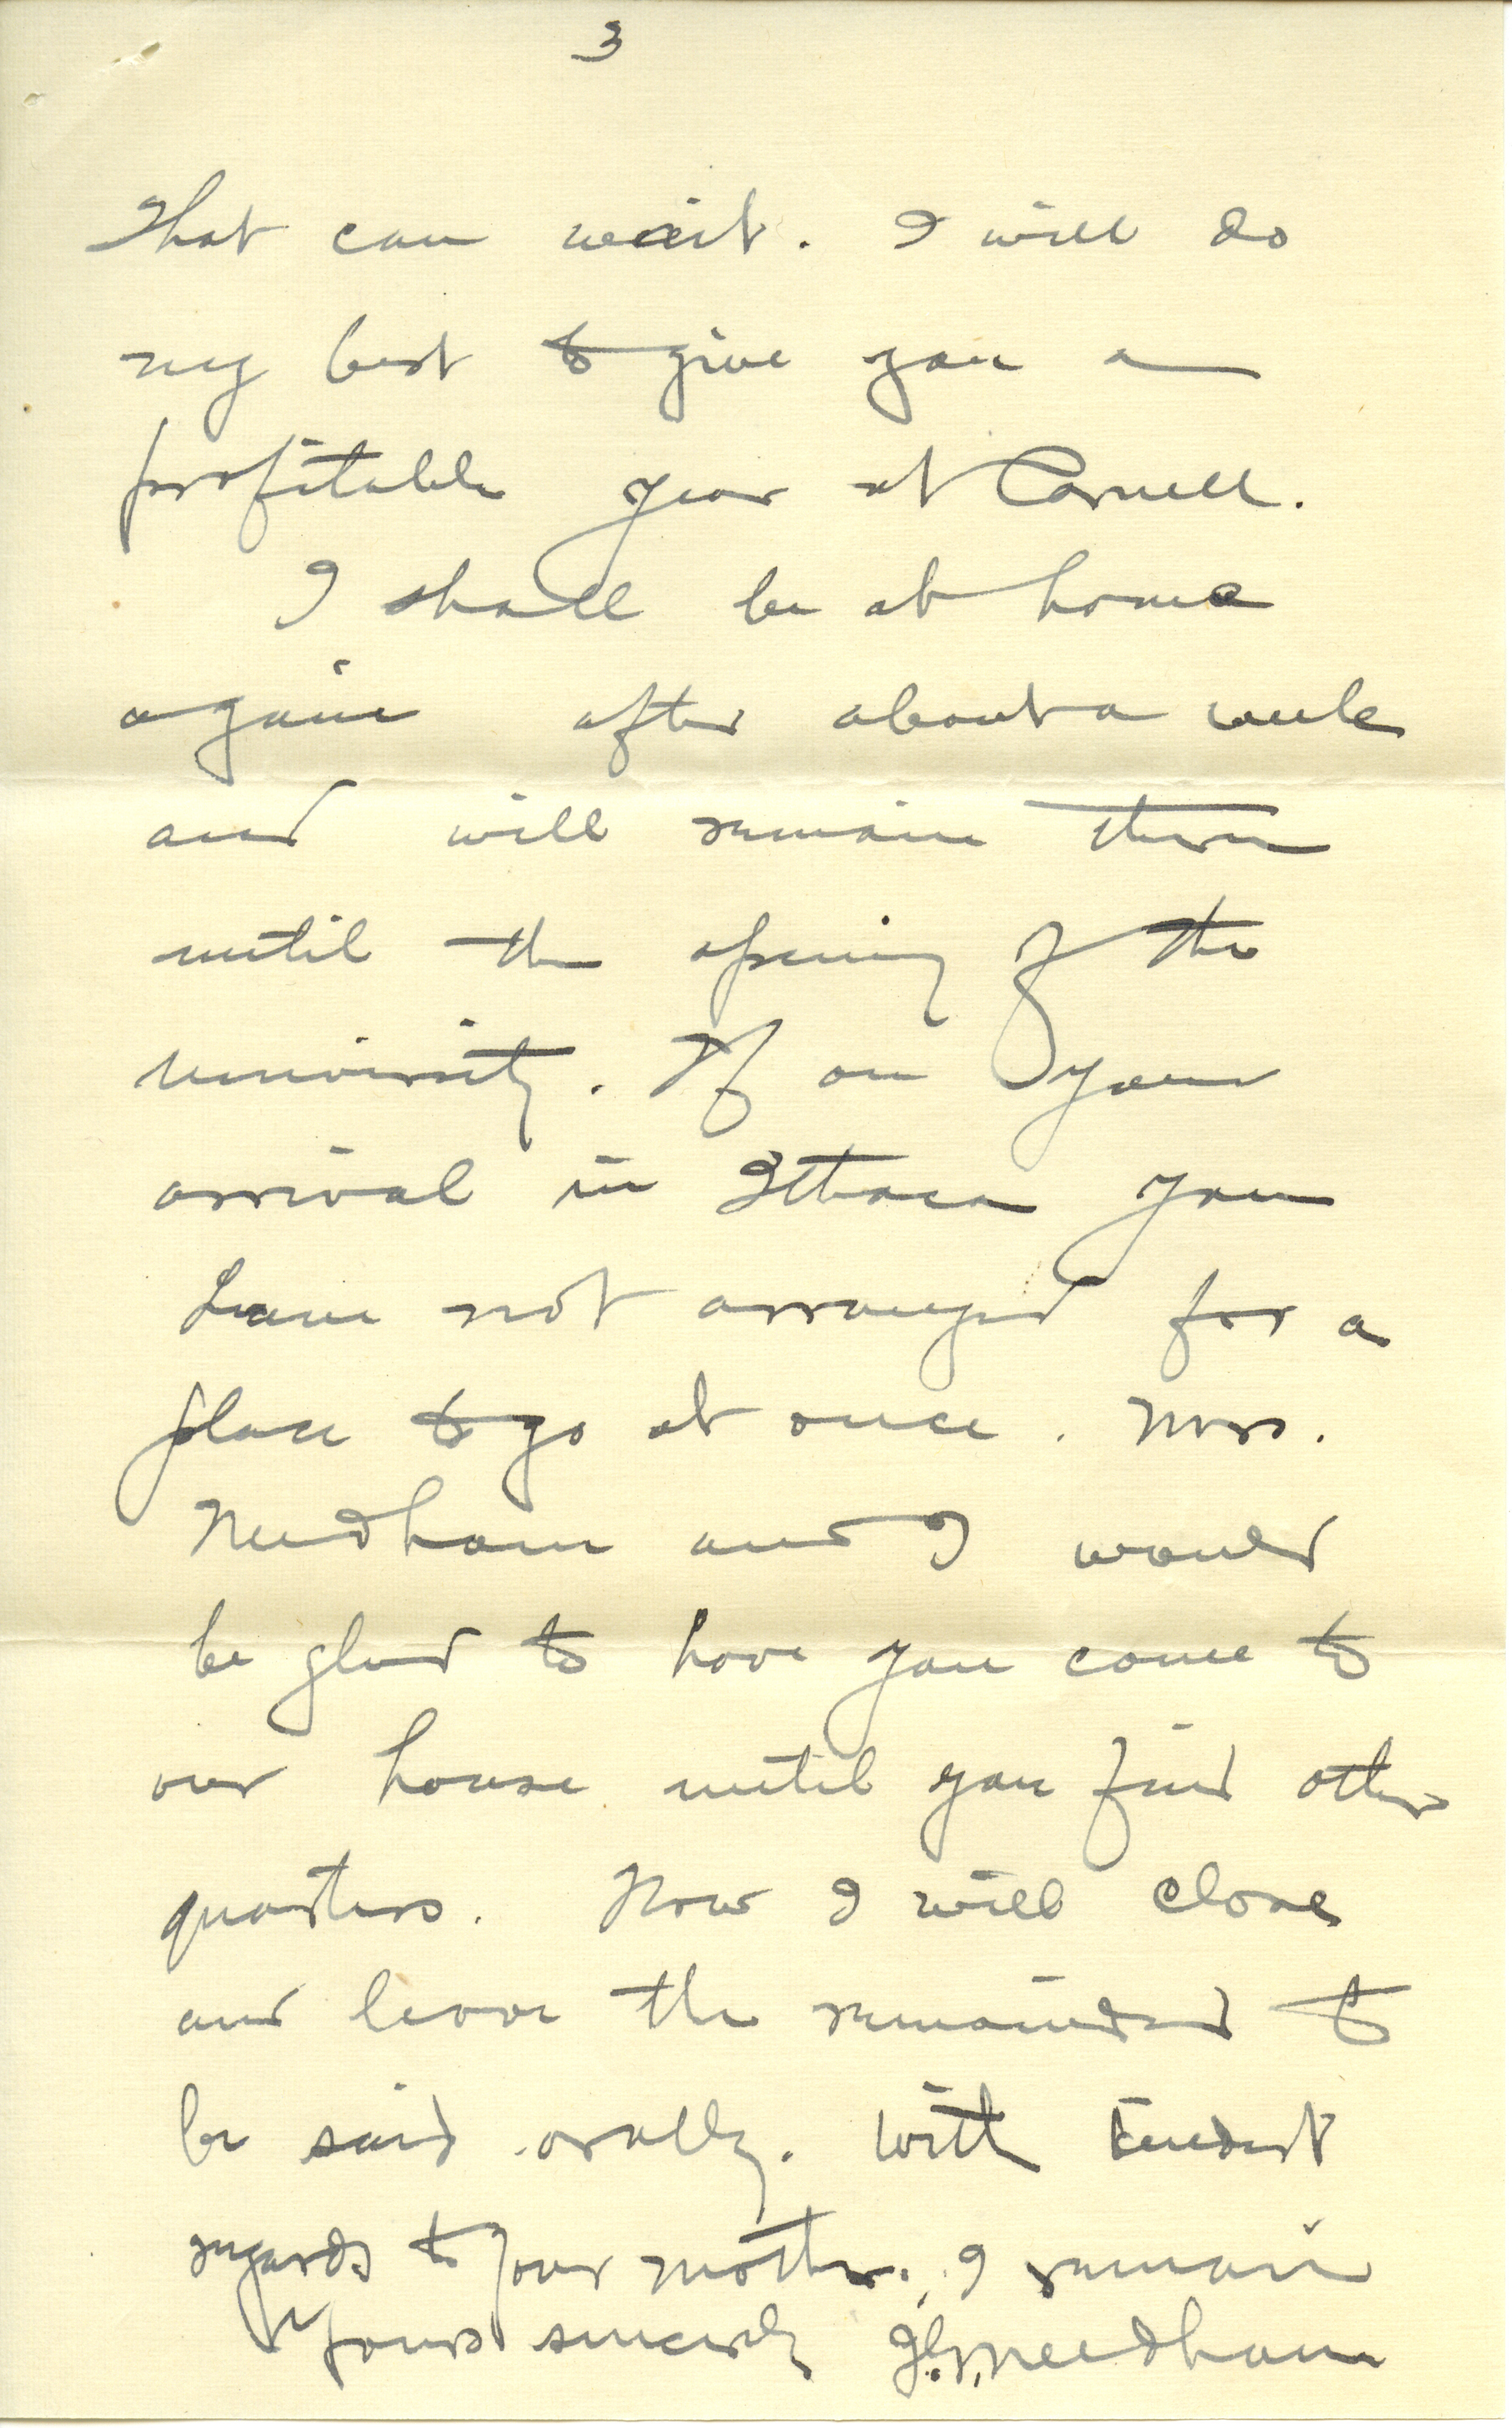 3
That can wait. I will do
my best to give you a
profitable year at Cornell.
I shall be at home
again after about a week
and will remain there
until the opening of the
university. If on your
arrival in Ithaca you
have not arranged for a
place to go at once. Mrs.
Needham and I would
be glad to have you come to
our house until you find other
quarters. Now I will close
and leave the remainder to
be said orally. With kindest
regards to your mother, I remain
Yours sincerely J.G. Needham